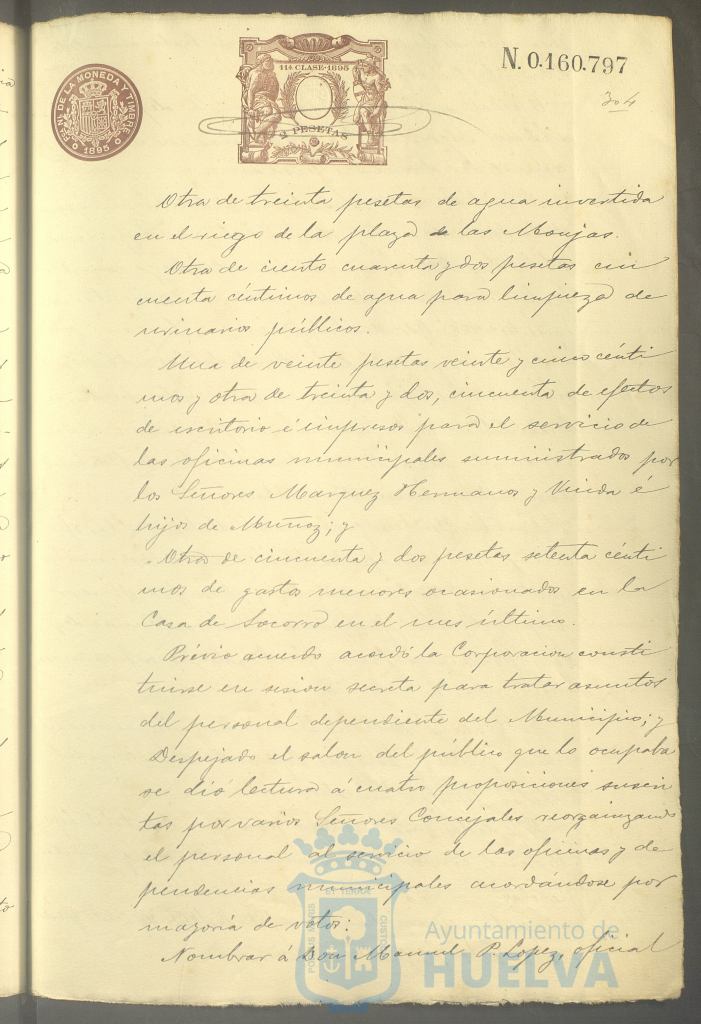 FAB. NL DE LA MONEDA Y TIMBRE
1895
11ª CLASE-1895
2 PESETAS
N.0.160.797
304
Otra de treinta pesetas de agua invertida
en el riego de la plaza de las Monjas.
Otra de ciento cuarenta y dos pesetas cin
cuenta céntimos de agua para limpieza de
urinarios públicos.
Una de veinte pesetas veinte y cinco cénti
mos y otra de treinta y dos, cincuenta de efectos
de escritorio é impresos para el servicio de
las oficinas municipales suministrados por
los Señores Marquez Hermanos y Viuda é
hijos de Muñoz; y
Otra de cincuenta y dos pesetas setenta cénti
mos de gastos menores ocasionados en la
Casa de Socorro en el mes último.
Prévio acuerdo acordó la Corporacion consti
tuirse en sesion secreta para tratar asuntos
del personal dependiente del Municipio; y
Despejado el salon del público que lo ocupaba
se dió lectura á cuatro proposiciones suscri
tas por varios Señores Concejales reorganizando
el personal al servicio de las oficinas y de
pendencias municipales acordándose por
mayoría de votos:
Nombrar á Don Manuel P. Lopez, oficial
PORTUS MARIS
ET TERRAE
CUSTODIA
Ayuntamiento de
HUELVA